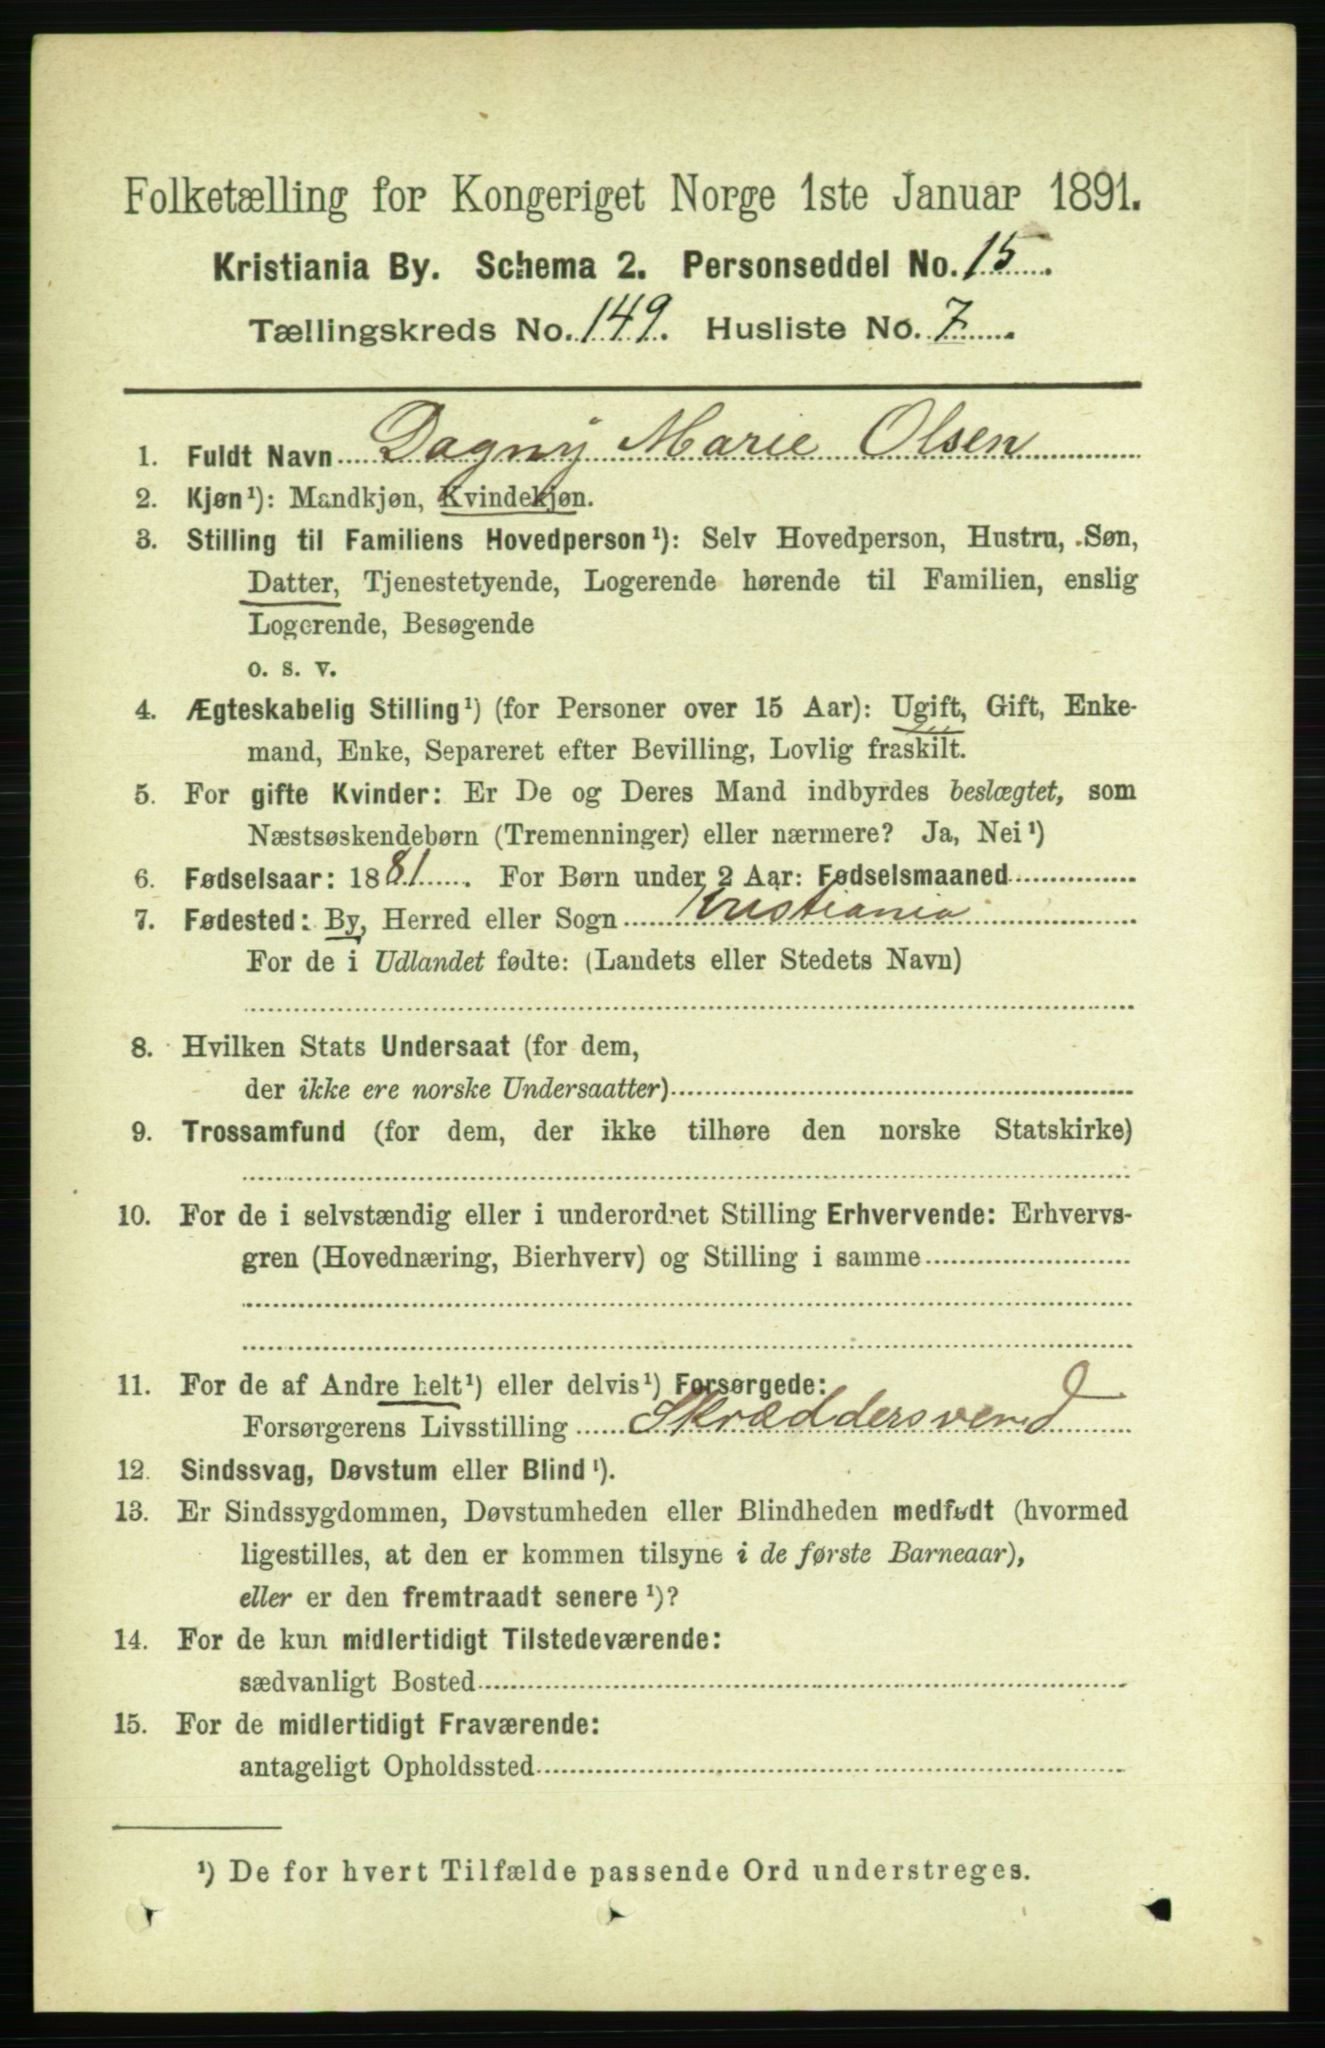 Folketælling for Kongeriget Norge 1ste Januar 1891.
Kristiania By. Schema 2. Personseddel No. 15
Tællingskreds No. 149. Husliste No. 7
1. Fuldt Navn Dagny Marie Olsen
2. Kjøn¹): Mandkjøn, Kvindekjøn.
3. Stilling til Familiens Hovedperson¹): Selv Hovedperson, Hustru, Søn,
Datter, Tjenestetyende, Logerende hørende til Familien, enslig
Logerende, Besøgende
o. s. v.
4. Ægteskabelig Stilling¹) (for Personer over 15 Aar): Ugift, Gift, Enke-
mand, Enke, Separeret efter Bevilling, Lovlig fraskilt.
5. For gifte Kvinder: Er De og Deres Mand indbyrdes beslægtet, som
Næstsøskendebørn (Tremenninger) eller nærmere? Ja, Nei¹)
6. Fødselsaar: 1881. For Børn under 2 Aar: Fødselsmaaned
7. Fødested: By, Herred eller Sogn Kristiania
For de i Udlandet fødte: (Landets eller Stedets Navn)
8. Hvilken Stats Undersaat (for dem,
der ikke ere norske Undersaatter)
9. Trossamfund (for dem, der ikke tilhøre den norske Statskirke)
10. For de i selvstændig eller i underordnet Stilling Erhvervende: Erhvervs-
gren (Hovednæring, Bierhverv) og Stilling i samme
11. For de af Andre helt¹) eller delvis¹) Forsørgede:
Forsørgerens Livsstilling Skræddersvend
12. Sindssvag, Døvstum eller Blind¹).
13. Er Sindssygdommen, Døvstumheden eller Blindheden medfødt (hvormed
ligestilles, at den er kommen tilsyne i de første Barneaar),
eller er den fremtraadt senere¹)?
14. For de kun midlertidigt Tilstedeværende:
sædvanligt Bosted
15. For de midlertidigt Fraværende:
antageligt Opholdssted
¹) De for hvert Tilfælde passende Ord understreges.